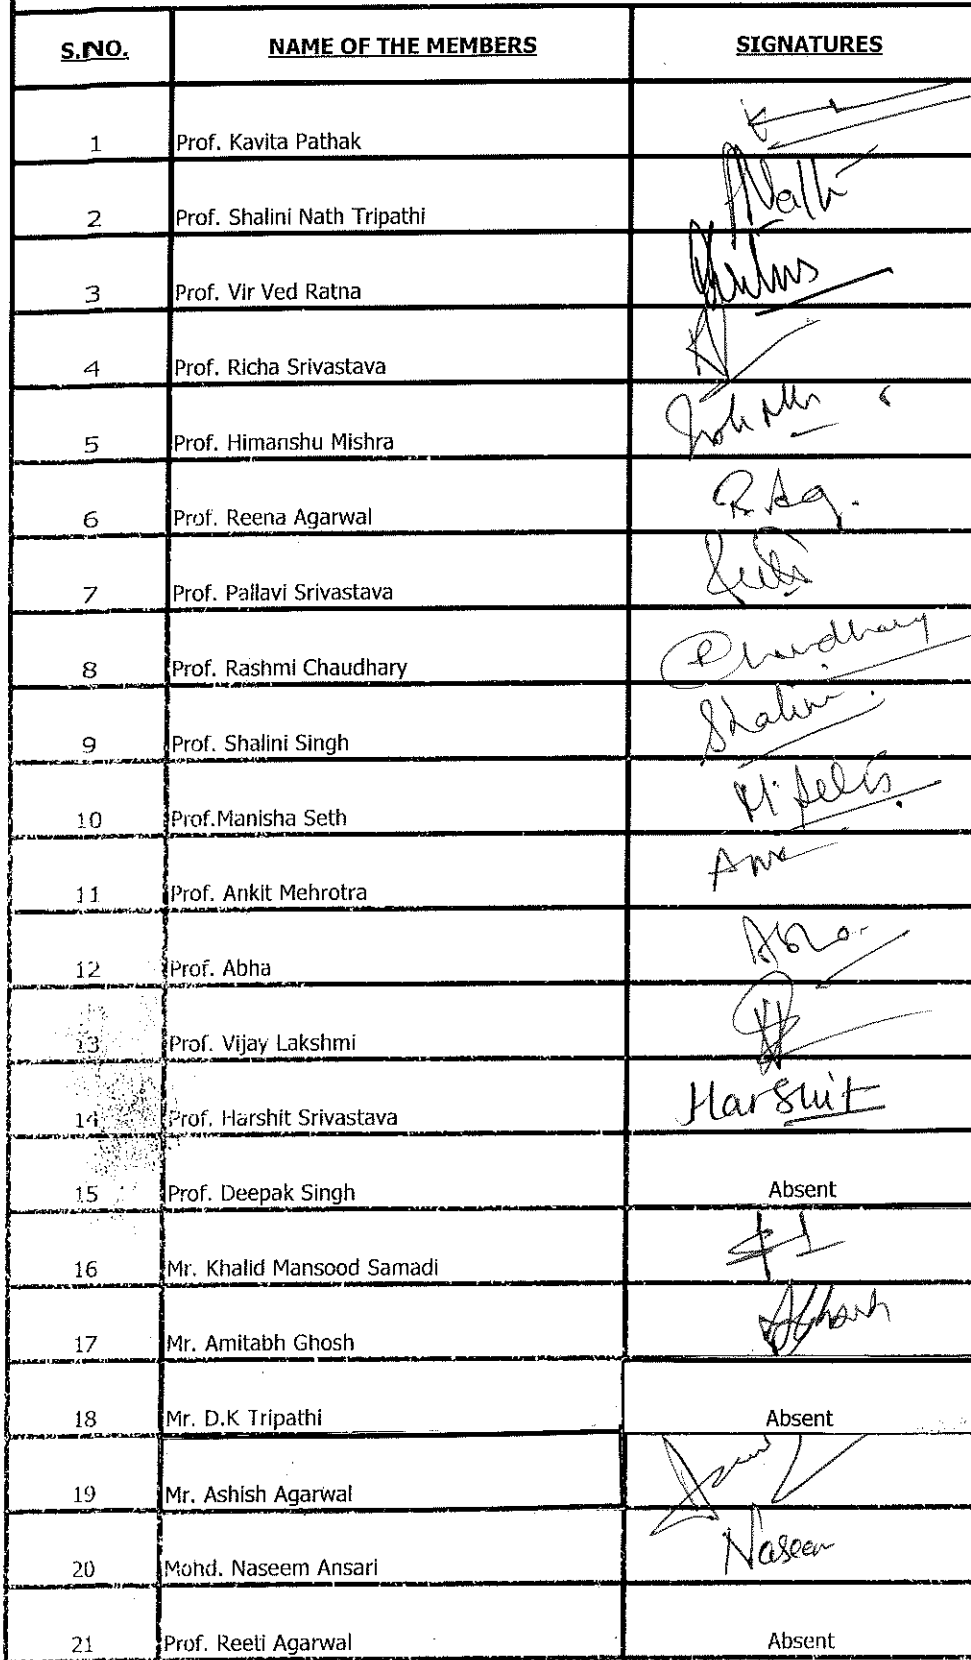 S.NO. NAME OF THE MEMBERS SIGNATURES
1 Prof. Kavita Pathak
2 Prof. Shalini Nath Tripathi
3 Prof. Vir Ved Ratna
4 Prof. Richa Srivastava
5 Prof. Himanshu Mishra
6 Prof. Reena Agarwal R. Ag.
7 Prof. Pallavi Srivastava
8 Prof. Rashmi Chaudhary Chaudhary
9 Prof. Shalini Singh Shalini
10 Prof.Manisha Seth
11 Prof. Ankit Mehrotra
12 Prof. Abha Abha
13 Prof. Vijay Lakshmi
14 Prof. Harshit Srivastava Harshit
15 Prof. Deepak Singh Absent
16 Mr. Khalid Mansood Samadi
17 Mr. Amitabh Ghosh
18 Mr. D.K Tripathi Absent
19 Mr. Ashish Agarwal
20 Mohd. Naseem Ansari Naseem
21 Prof. Reeti Agarwal Absent